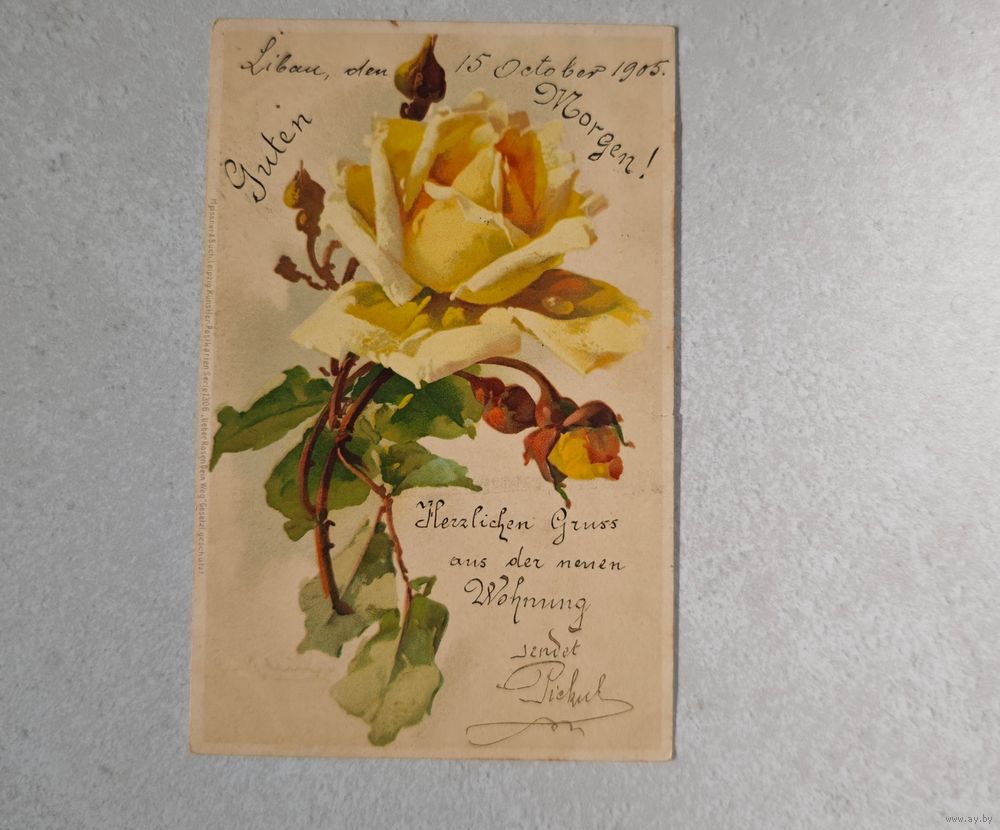 Libau, den 15 October 1905.
Guten Morgen!
Meissner & Buch, Leipzig Künstler-Postkarten Serie 1306 "Ueber Rosen Dein Weg" Gesetzl. geschützt
Herzlichen Gruss
aus der neuen
Wohnung
sendet
www.ay.by